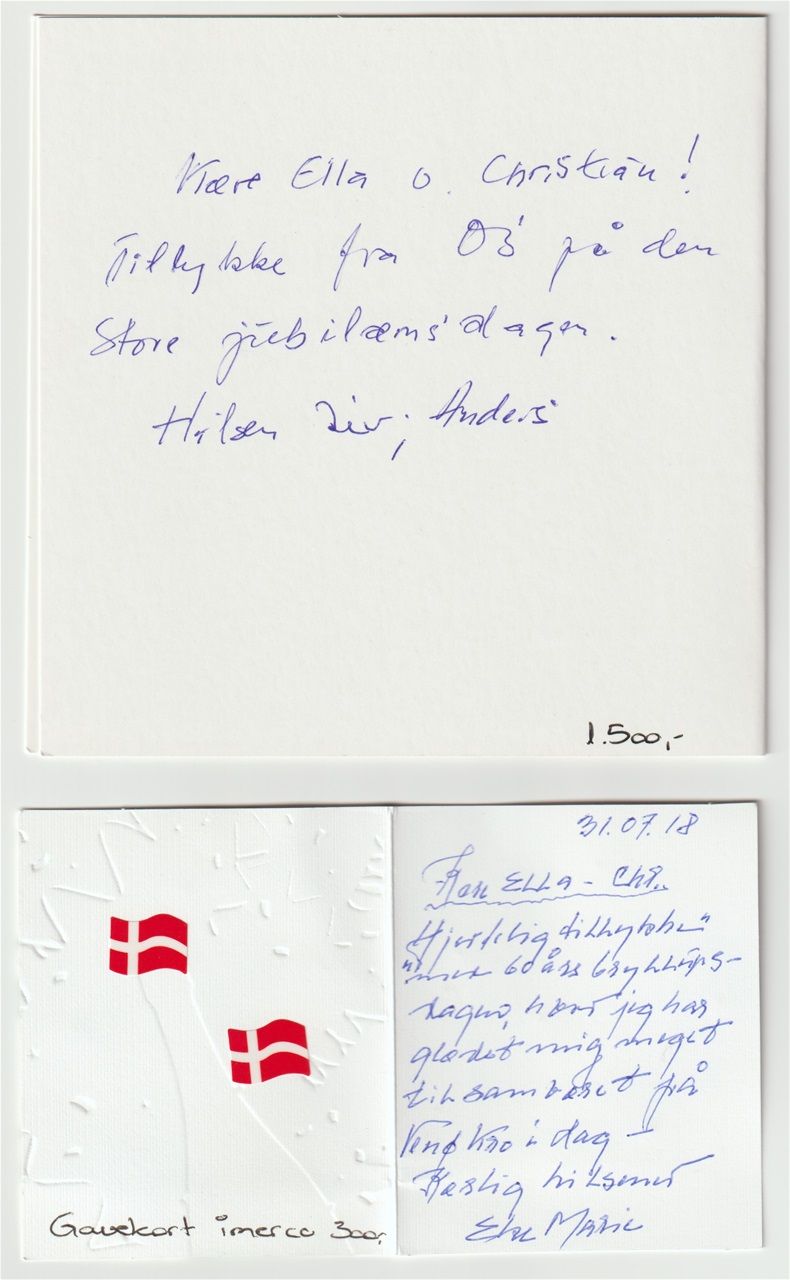 Kære Ella o. Christian!
Tillykke fra OS på den
Store jubilæmsdagen.
Hilsen Liv, Anders
1.500,-
31.07.18
Kære ELLA - CHR.
Hjertelig tillykke"
"med 60 års bryllups-
dagen, hvor jeg har
glædet mig meget
til samværet på
Venø Kro i dag -
Kærlig hilsener
Else Marie
Gavekort imerco 300,